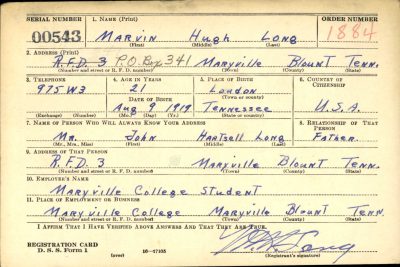 SERIAL NUMBER 1. NAME (Print) ORDER NUMBER
00543 MARVIN Hugh Long 1884
(First) (Middle) (Last)
2. ADDRESS (Print)
R.F.D. 3 P.O. Box 341 Maryville Blount Tenn.
(Number and street or R. F. D. number) (Town) (County) (State)
3. TELEPHONE 4. AGE IN YEARS 5. PLACE OF BIRTH 6. COUNTRY OF CITIZENSHIP
975W3 21 London
DATE OF BIRTH (Town or county)
Aug 9 1919 Tennessee U.S.A.
(Exchange) (Number) (Mo.) (Day) (Yr.) (State or country)
7. NAME OF PERSON WHO WILL ALWAYS KNOW YOUR ADDRESS 8. RELATIONSHIP OF THAT PERSON
Mr. John Hartsell Long Father
(Mr., Mrs., Miss) (First) (Middle) (Last)
9. ADDRESS OF THAT PERSON
R.F.D. 3 Maryville Blount Tenn.
(Number and street or R. F. D. number) (Town) (County) (State)
10. EMPLOYER'S NAME
Maryville College Student
11. PLACE OF EMPLOYMENT OR BUSINESS
Maryville College Maryville Blount Tenn.
(Number and street or R. F. D. number) (Town) (County) (State)
I AFFIRM THAT I HAVE VERIFIED ABOVE ANSWERS AND THAT THEY ARE TRUE.
REGISTRATION CARD
D. S. S. Form 1 (over) 16—17105 (Registrant's signature)